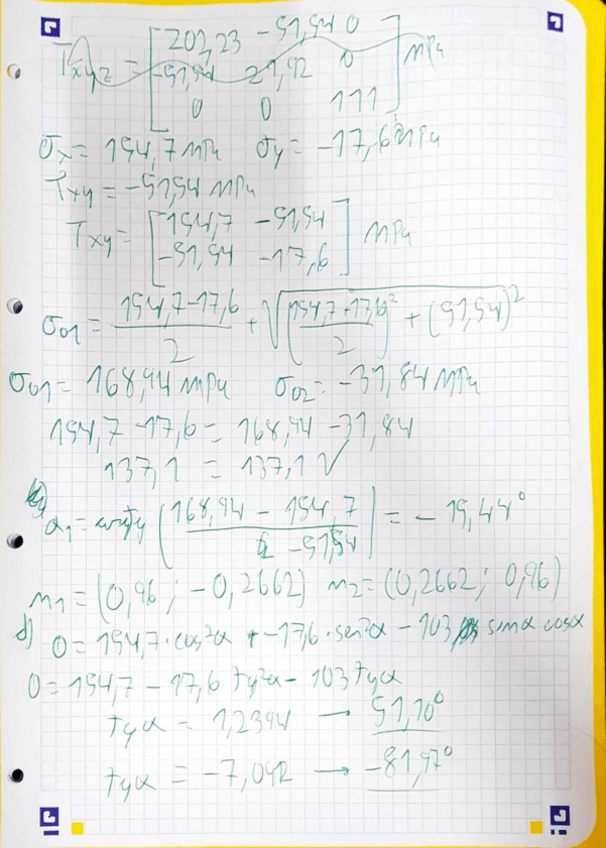 T_xyz = [207,23 -51,54 0
-51,54 21,92 0
0 0 111] MPa
σx = 154,7 MPa σy = -17,6 MPa
τxy = -51,54 MPa
Txy = [154,7 -51,54
-51,54 -17,6] MPa
σ01 = (154,7-17,6)/2 + √(((154,7+17,6)/2)² + (51,54)²)
σ01 = 168,94 MPa σ02 = -31,84 MPa
154,7-17,6 = 168,94 -31,84
137,1 = 137,1 √
α1 = arctg ((168,94 - 154,7)/(-51,54)) = -15,44°
n1 = (0,96 ; -0,2662) n2 = (0,2662 ; 0,96)
d) 0 = 154,7·cos²α + -17,6·sen²α - 103 sinα cosα
0 = 154,7 - 17,6 tg²α - 103 tgα
tgα = 1,2394 → 51,10°
tgα = -7,092 → -81,97°